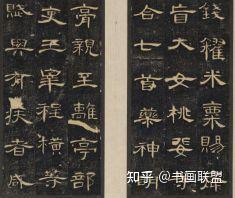 錢糴米粟賜癃
盲大女桃婓等
合七首藥神明
膏親至離亭部
吏王宰程橫等
賦與有疾者咸
知乎 @书画联盟